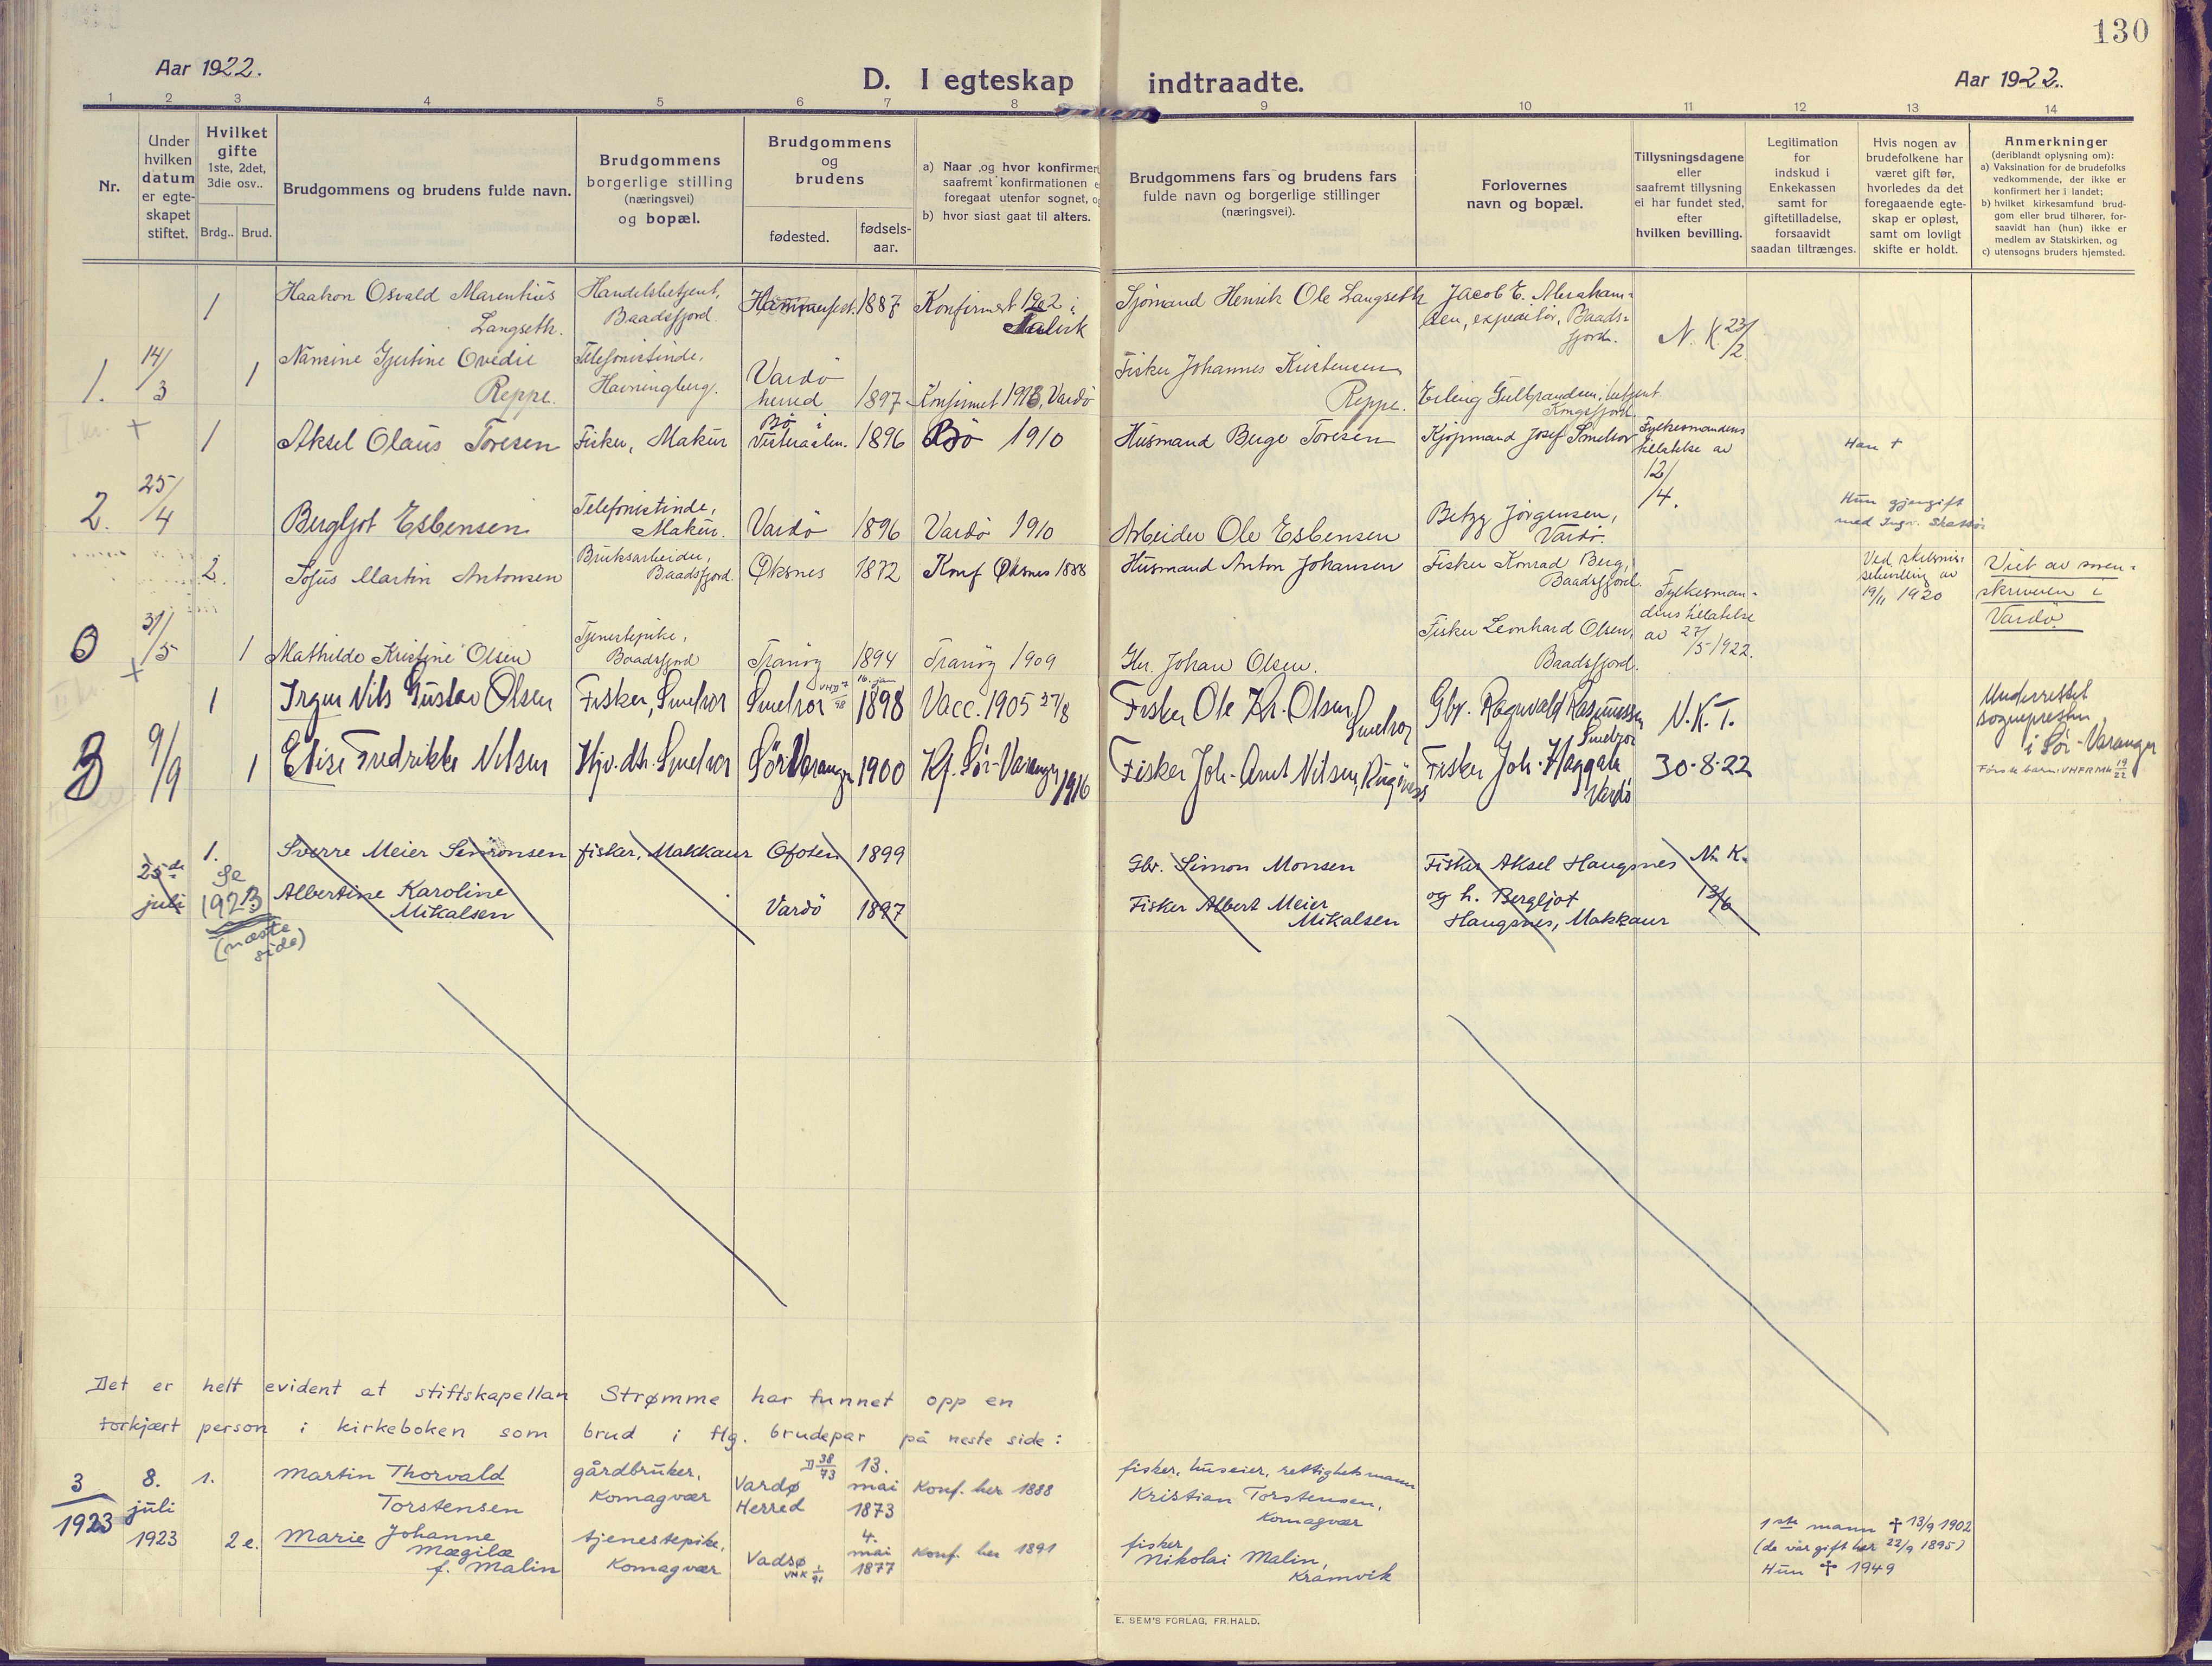 130
Aar 1922.
D. I egteskap indtraadte.
Aar 1922.
1 2 3 4 5 6 7 8 9 10 11 12 13 14
Nr.
Under hvilken datum er egte-skapet stiftet.
Hvilket gifte
1ste, 2det, 3die osv..
Brdg.. Brud.
Brudgommens og brudens fulde navn.
Brudgommens borgerlige stilling (næringsvei) og bopæl.
Brudgommens og brudens
fødested.
fødsels-aar.
a) Naar og hvor konfirmert saafremt konfirmationen foregaat utenfor sognet,
b) hvor sidst gaat til alters.
Brudgommens fars og brudens fars fulde navn og borgerlige stillinger (næringsvei).
Forlovernes navn og bopæl.
Tillysningsdagene eller saafremt tillysning ei har fundet sted, efter hvilken bevilling.
Legitimation for indskud i Enkekassen samt for giftetilladelse, forsaavidt saadan tiltrænges.
Hvis nogen av brudefolkene har været gift før, hvorledes da det foregaaende egte-skap er opløst, samt om lovligt skifte er holdt.
Anmerkninger
(deriblandt oplysning om):
a) Vaksination for de brudefolks vedkommende, der ikke er konfirmert her i landet;
b) hvilket kirkesamfund brud-gom eller brud tilhører, for-saavidt han (hun) ikke er medlem av Statskirken, og
c) utensogns bruders hjemsted.
1 Haakon Osvald Marentius Langseth. Handelsbetjent, Baadsfjord. Hammerfest. 1887 Konfirmert 1902 i Talvik Sjömand Henrik Ole Langseth Jacob E. Abraham-sen, expeditör, Baads-fjord. N. K. 23/2
1. 14/3 1 Nancine Gjertine Ovedie Reppe. Telefonistinde, Havningberg. Vardö herred 1897 Konfirmert 1913, Vardö Fisker Johannes Kristensen Reppe. Erling Gulbrandsen, betjent Kongsfjord
1 Aksel Olaus Toresen Fisker, Makur Bö i Vesteraalen. 1896 Bö 1910 Husmand Berge Toresen Kjöpmand Josef Smelror Fylkesmandens tillatelse av 12/4. Han †
2. 25/4 Bergljot Esbensen Telefonistinde, Makur. Vardö 1896 Vardö 1910 Arbeider Ole Esbensen Betzy Jörgensen, Vardö. Hun gjengift med Ingv.
2. Sofus Martin Antonsen Bruksarbeider, Baadsfjord. Øksnes 1872 Konf Øksnes 1888 Husmand Anton Johansen Fisker Konrad Berg, Baadsfjord. Fylkesman-dens tillatelse av 27/5 1922. Ved skilsmis-sebevilling av 19/11 1920 Viet av soren-skriveren i Vardö.
0 31/5 1 Mathilde Kristine Olsen Tjenestepike, Baadsfjord Tranöy 1894 Tranöy 1909 Gbr. Johan Olsen. Fisker Leonhard Olsen, Baadsfjord.
1 Irgen Nils Gustav Olsen Fisker, Smelror Smelror 16. jan 1898 Vacc. 1905 27/8 Fisker Ole Kr. Olsen Smelror Gbr. Ragnvald Rasmussen Smelror N. K. T. Underrettet sogneprestn i Sör-Varanger
3 9/9 1 Elise Fredrikke Nilsen Hjv. dtr. Smelror Sör Varanger 1900 Kf. Sör-Varanger 1916 Fisker Joh. Arnt Nilsen, Bugönes Fisker Joh. Haggala Vardö 30-8-22 Første barn: VHFRMk 19/22
25de juli 1. Sverre Meier Simonsen fisker, Makkaur Ofoten 1899 Gbr. Simon Monsen Fisker Aksel Haugsnes N. K. 13/6
Se 1923 (næste side) Albertine Karoline Mikalsen Vardö 1897 Fisker Albert Meier Mikalsen og h. Bergljot Haugsnes, Makkaur
Det er helt evident at stiftskapellan Strømme har funnet opp en
forkjært person i kirkeboken som brud i flg. brudepar på neste side:
3/1923 8. juli 1923 1. Martin Thorvald Torstensen gårdbruker, Komagvær Vardø Herred D 38/73 13. mai 1873 Konf. her 1888 fisker, huseier, rettighetsmann Kristian Torstensen, Komagvær
2 e. Marie Johanne Mægilæ f. Malin tjenestepike, Komagvær Vadsø VHK 1/91 4. mai 1877 Konf. her 1891 fisker Nikolai Malin, Kramvik 1ste mann † 13/9 1902 (de var gift her 22/9 1895) Hun † 1949
E. SEM'S FORLAG, FR.HALD.